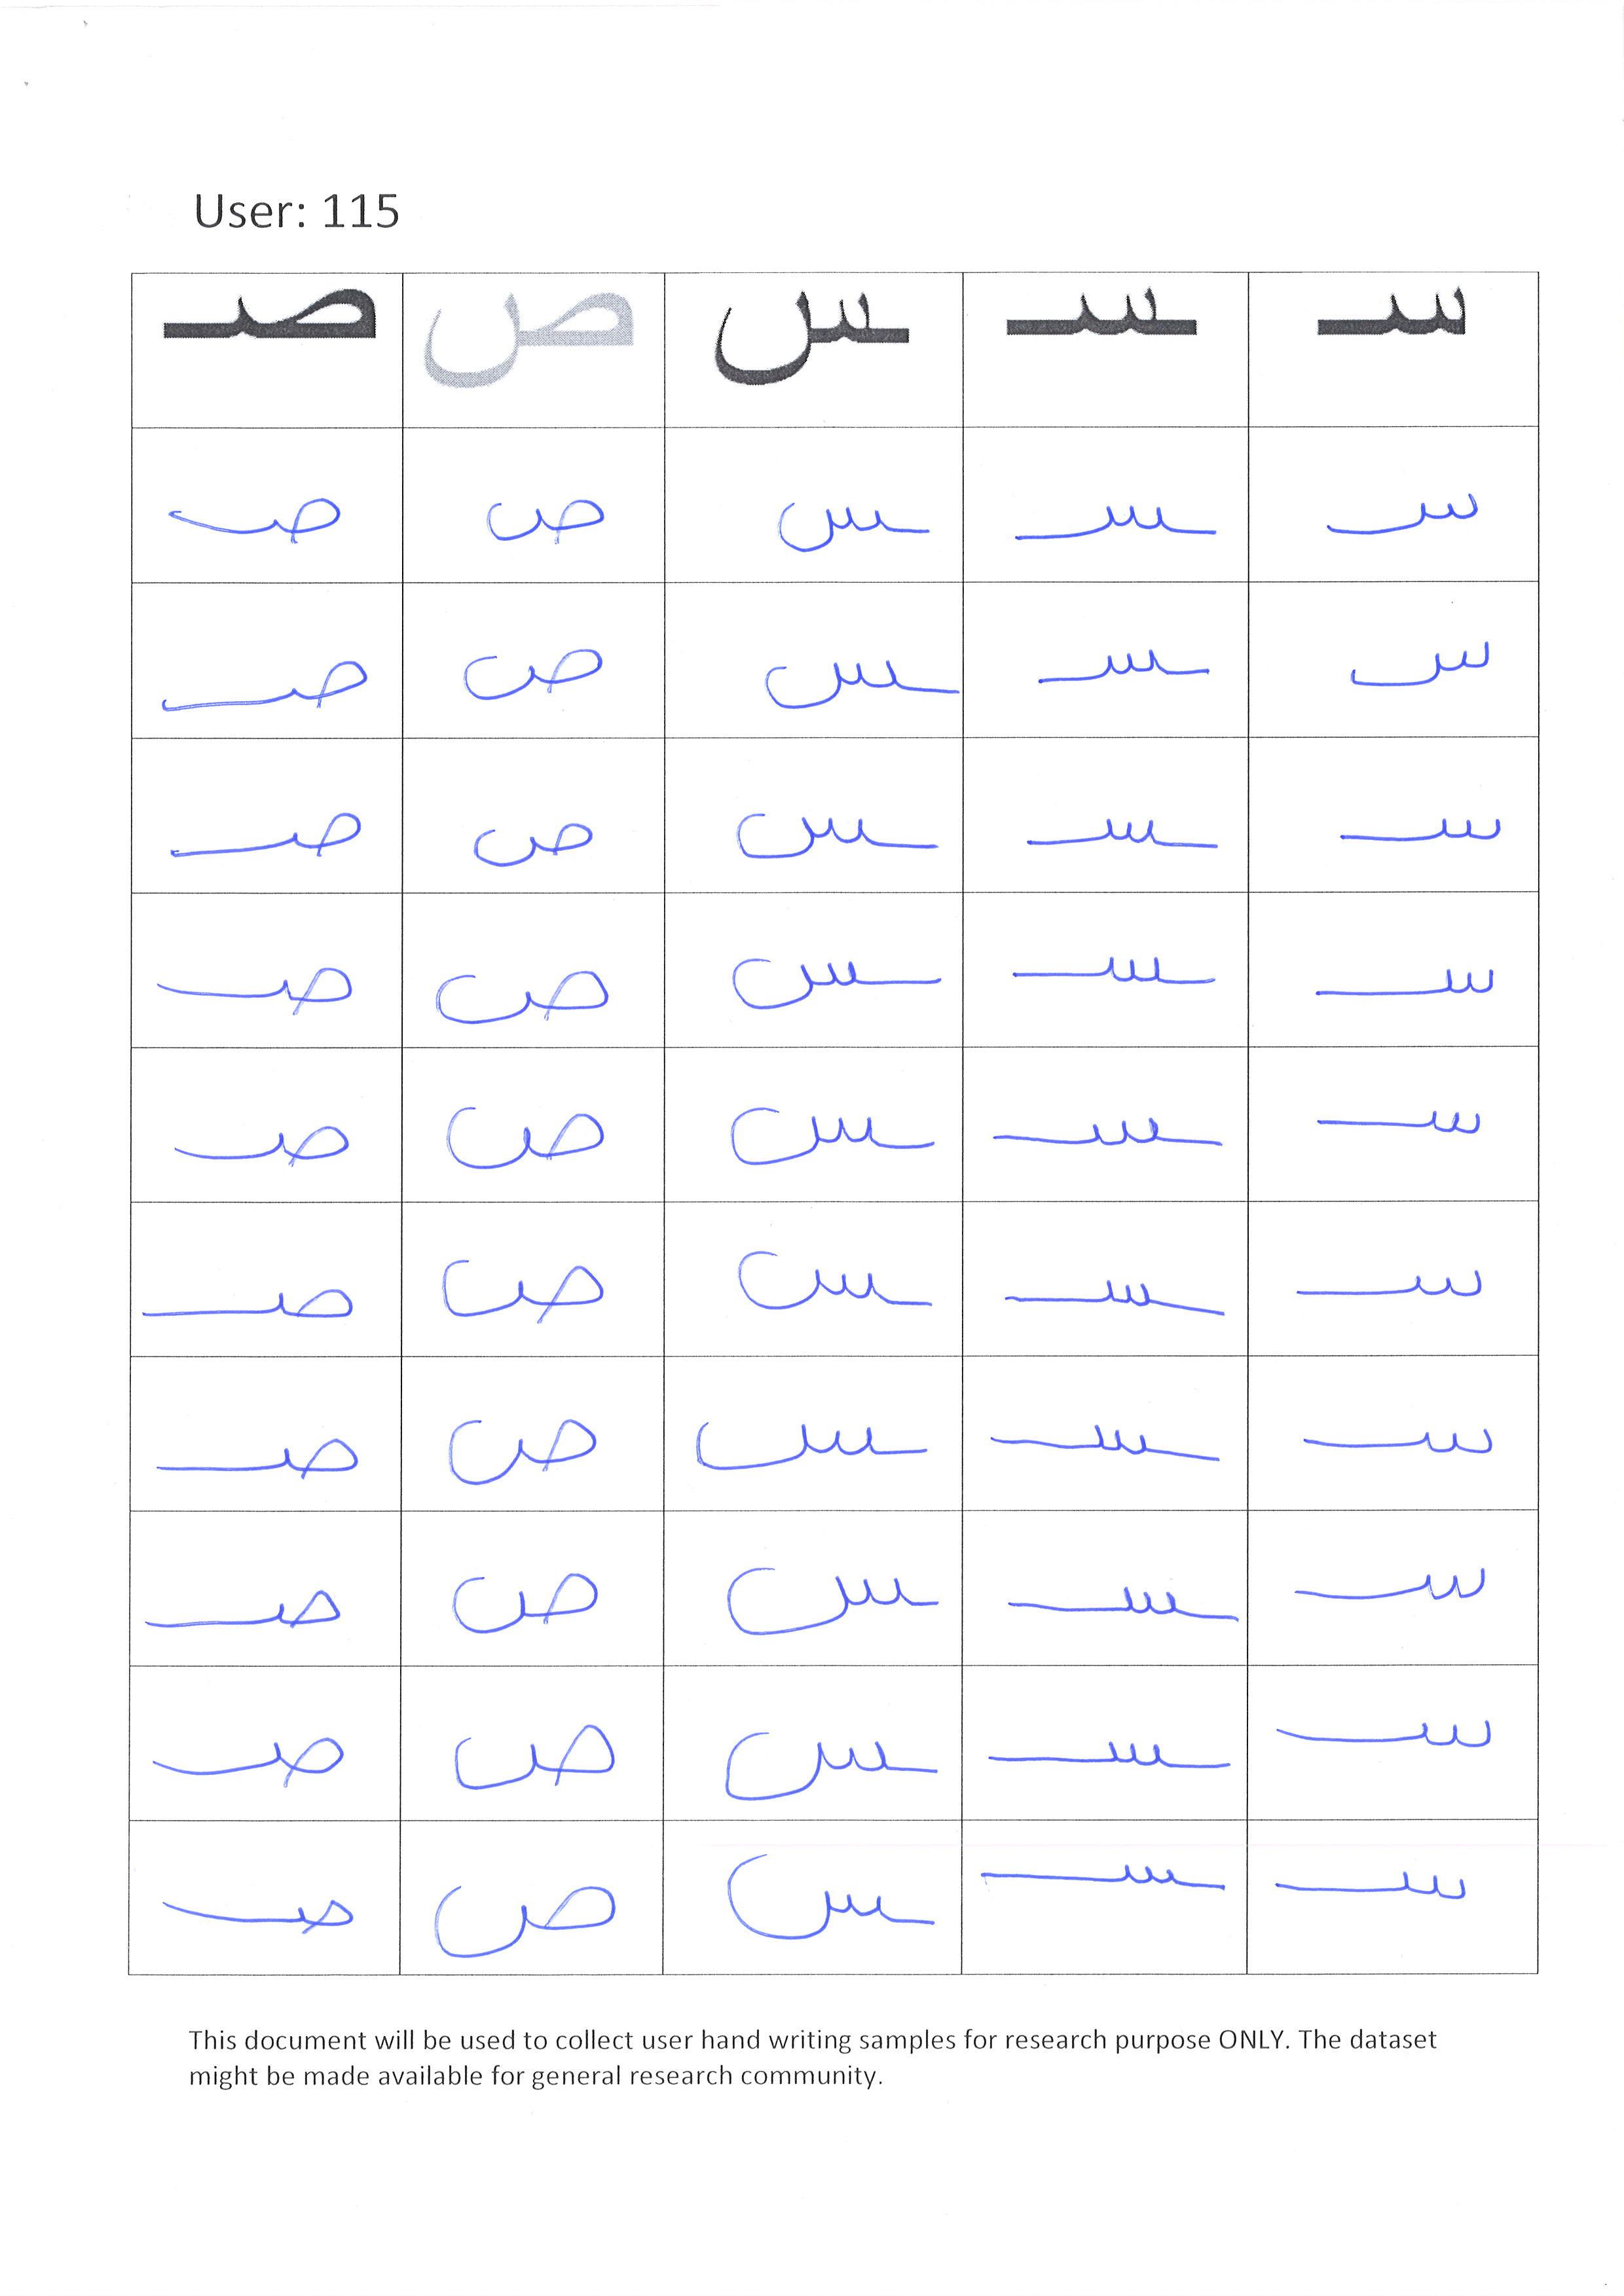 User: 115
صـ ص ـس ـسـ سـ
صـ ص ـس ـسـ سـ
صـ ص ـس ـسـ سـ
صـ ص ـس ـسـ سـ
صـ ص ـس ـسـ سـ
صـ ص ـس ـسـ سـ
صـ ص ـس ـسـ سـ
صـ ص ـس ـسـ سـ
صـ ص ـس ـسـ سـ
صـ ص ـس ـسـ سـ
صـ ص ـس ـسـ سـ
This document will be used to collect user hand writing samples for research purpose ONLY. The dataset
might be made available for general research community.